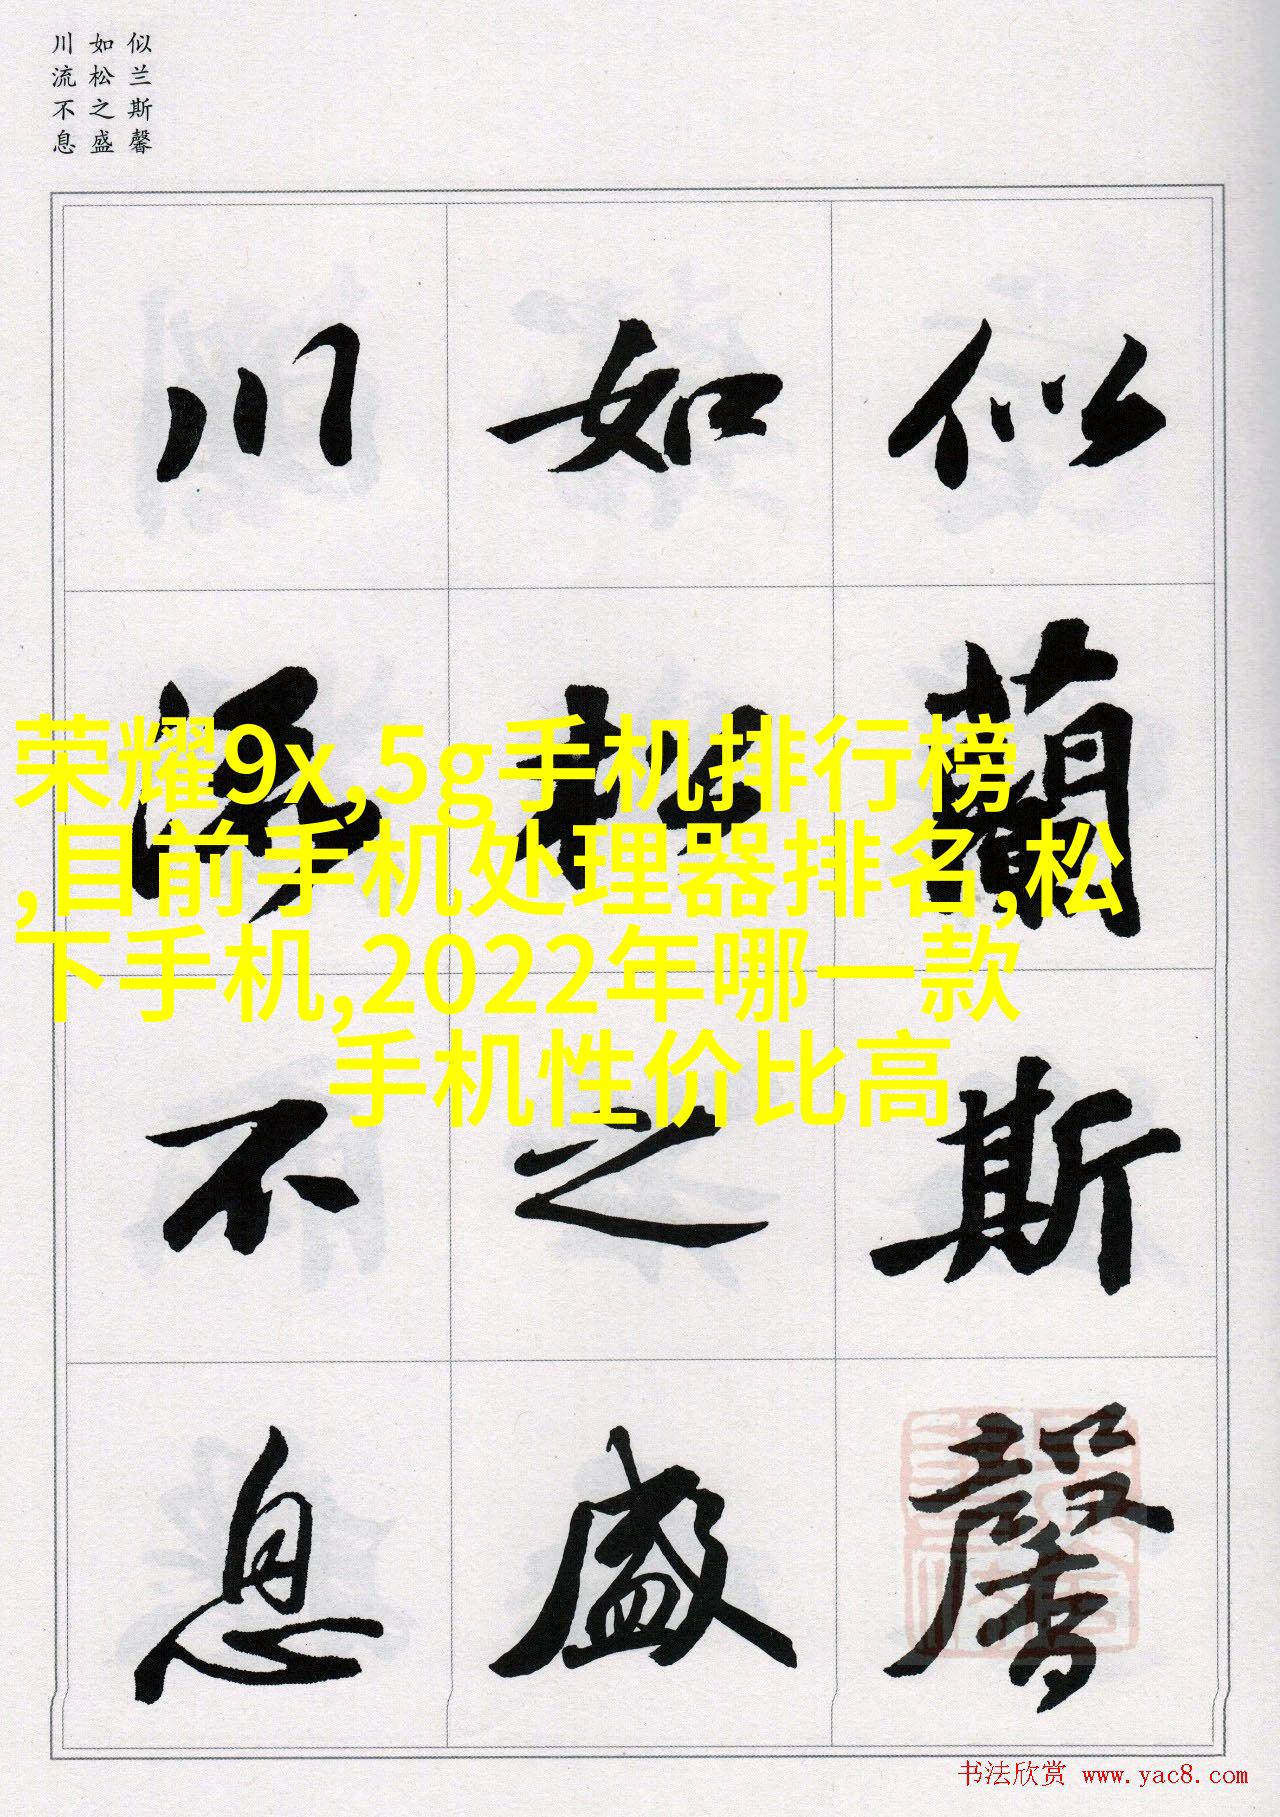 似兰斯馨
如松之盛
川流不息
似蘭斯馨
如松之盛
川流不息
荣耀9x,5g手机排行榜
,目前手机处理器排名,松
下手机,2022年哪一款
手机性价比高
书法欣赏 www.yac8.com